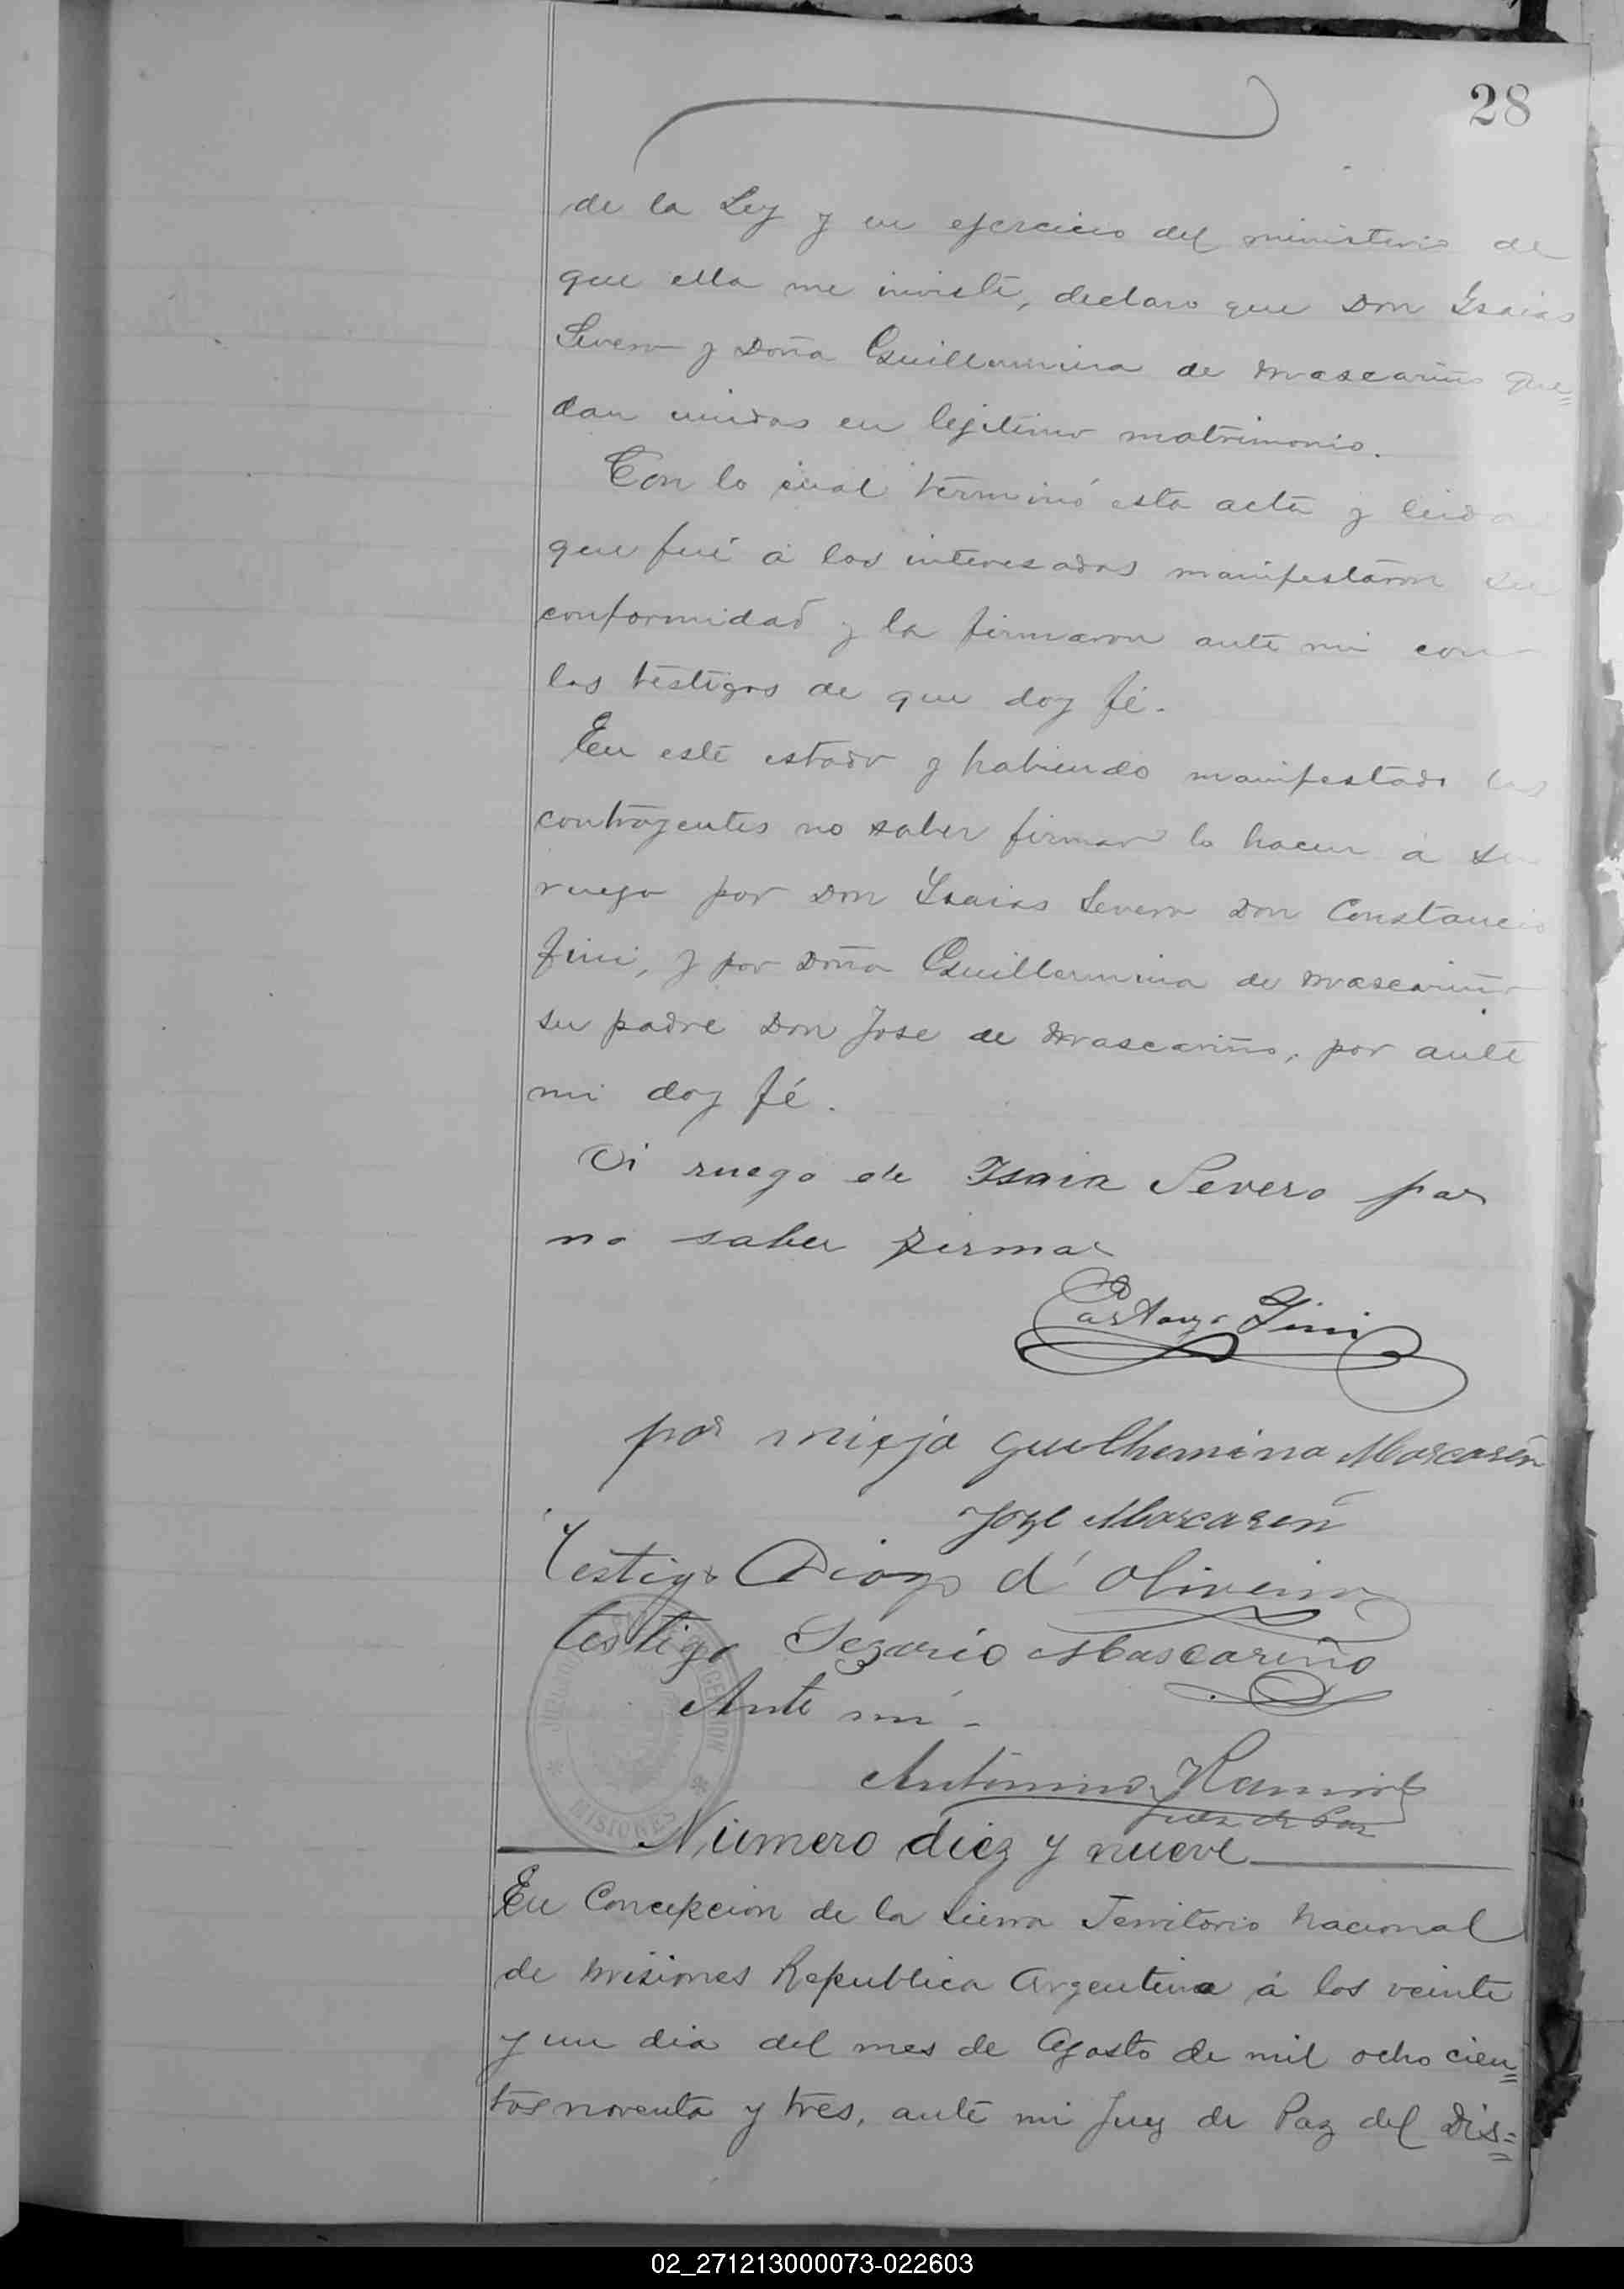 28
de la Ley y en ejercicio del ministerio de
que ella me inviste, declaro que Don Ysaias
Severo y Doña Guillermina de Mascariño que=
dan unidos en lejitimo matrimonio.
Con lo cual terminó esta acta y leida
que fué á los interesados manifestaron su
conformidad y la firmaron ante mi con
los testigos de que doy fé.
En este estado y habiendo manifestado los
contrayentes no saber firmar lo hacen á su
ruego por Don Ysaias Severo Don Constancio
Fini, y por Doña Guillermina de Mascariño
su padre Don Jose de Mascariño, por ante
mi doy fé.
A ruego de Isaia Severo por
no saber firmar
Fini
por mi ija guilhermina Mascareñ
Joze Mascareñ
Testigo Diogo d' Oliveira
testigo Sezario Mascariño
Ante mi
Antonino Ramirez
Juez de Paz
MISIONES
Número diez y nueve
En Concepcion de la Sierra Territorio Nacional
de Misiones Republica Argentina á los veinte
y un dia del mes de Agosto de mil ocho cien=
tos noventa y tres, ante mi Juez de Paz del Dis=
02_271213000073-022603